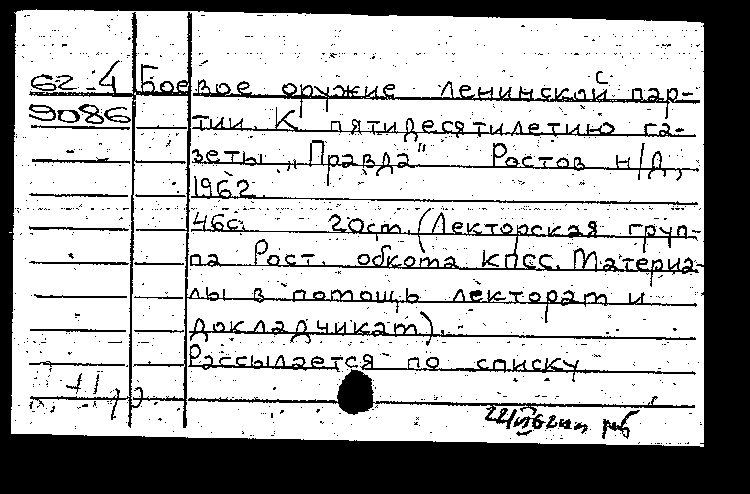 62-4 Боевое оружие ленинской пар-
9086 тии. К пятидесятилетию га-
зеты „Правда" Ростов н/Д,
1962
46с. 20см. (Лекторская груп-
па Рост. обкома КПСС. Материа-
лы в помощь лекторам и
докладчикам).
Рассылается по списку